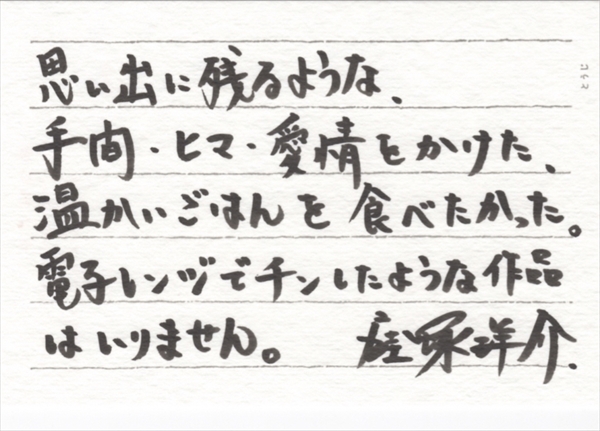 思い出に残るような、
手間・ヒマ・愛情をかけた、
温かいごはんを食べたかった。
電子レンジでチンしたような作品
はいりません。 塚洋介.
とうじ